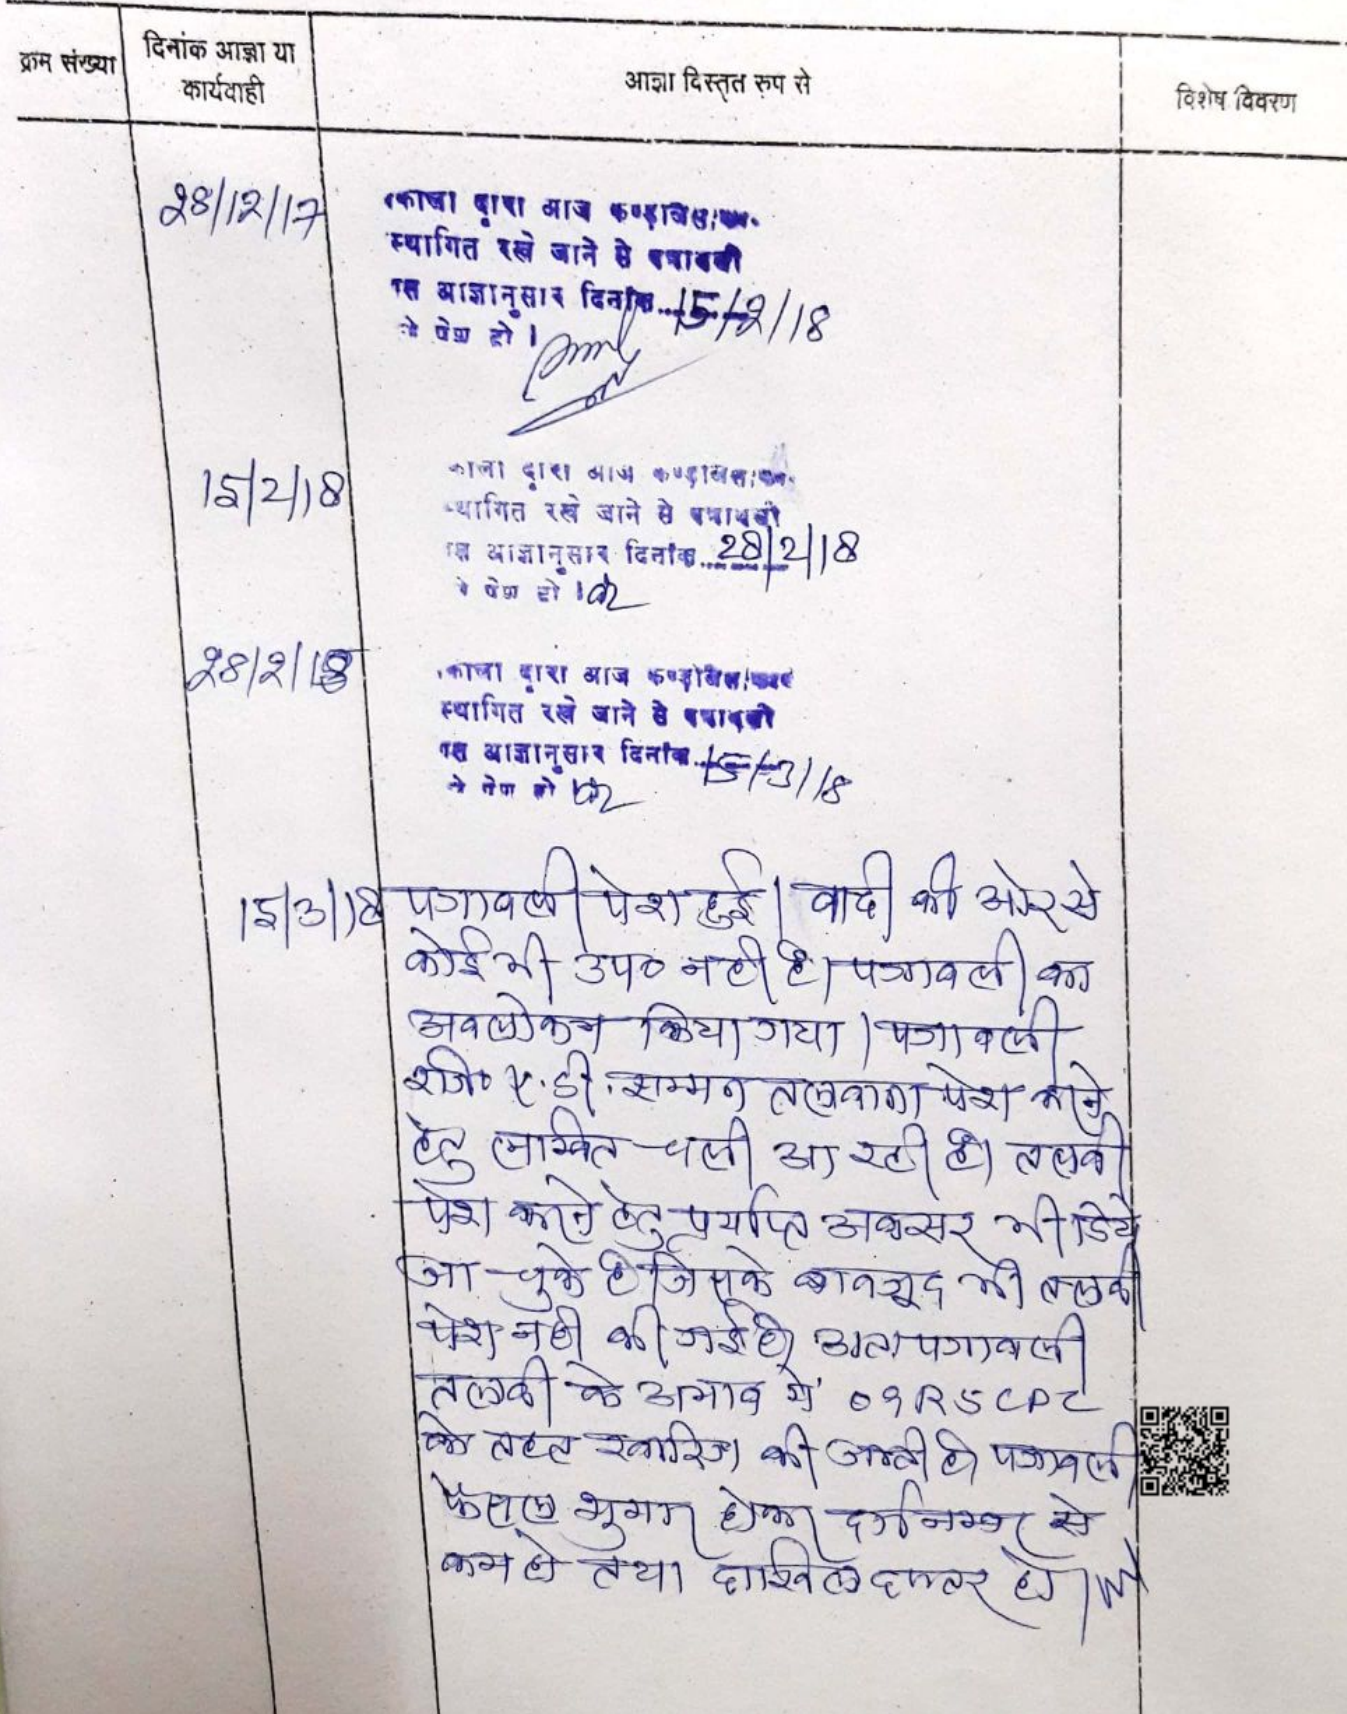 क्रम संख्या
दिनांक आज्ञा या
कार्यवाही
आज्ञा विस्तृत रुप से
विशेष विवरण
28/12/17
द्वारा आज
स्थागित रखे जाने से पत्रावली
आज्ञानुसार दिनांक 15/2/18
पेश हो ।
15/2/18
द्वारा आज
स्थागित रखे जाने से पत्रावली
आज्ञानुसार दिनांक 28/2/18
पेश हो ।
28/2/18
द्वारा आज
स्थागित रखे जाने से पत्रावली
आज्ञानुसार दिनांक 15/3/18
पेश हो ।
15/3/18 पत्रावली पेश हुई । वादी की ओर से
कोई भी उप० नही है। पत्रावली का
अवलोकन किया गया । पत्रावली
रजि० ए.डी. सम्मन तलवाना पेश करने
हेतु लम्बित चली आ रही है। तलबी
पेश करने हेतु पर्याप्त अवसर भी दिये
जा चुके है जिसके बावजूद भी तलबी
पेश नही की गई है। अतः पत्रावली
तलबी के अभाव में 09R5 CPC
के तहत खारिज की जाती है। पत्रावली
फैसल शुमार होकर दर्ज नम्बर से
कम हो तथा दाखिल दफ्तर हो ।